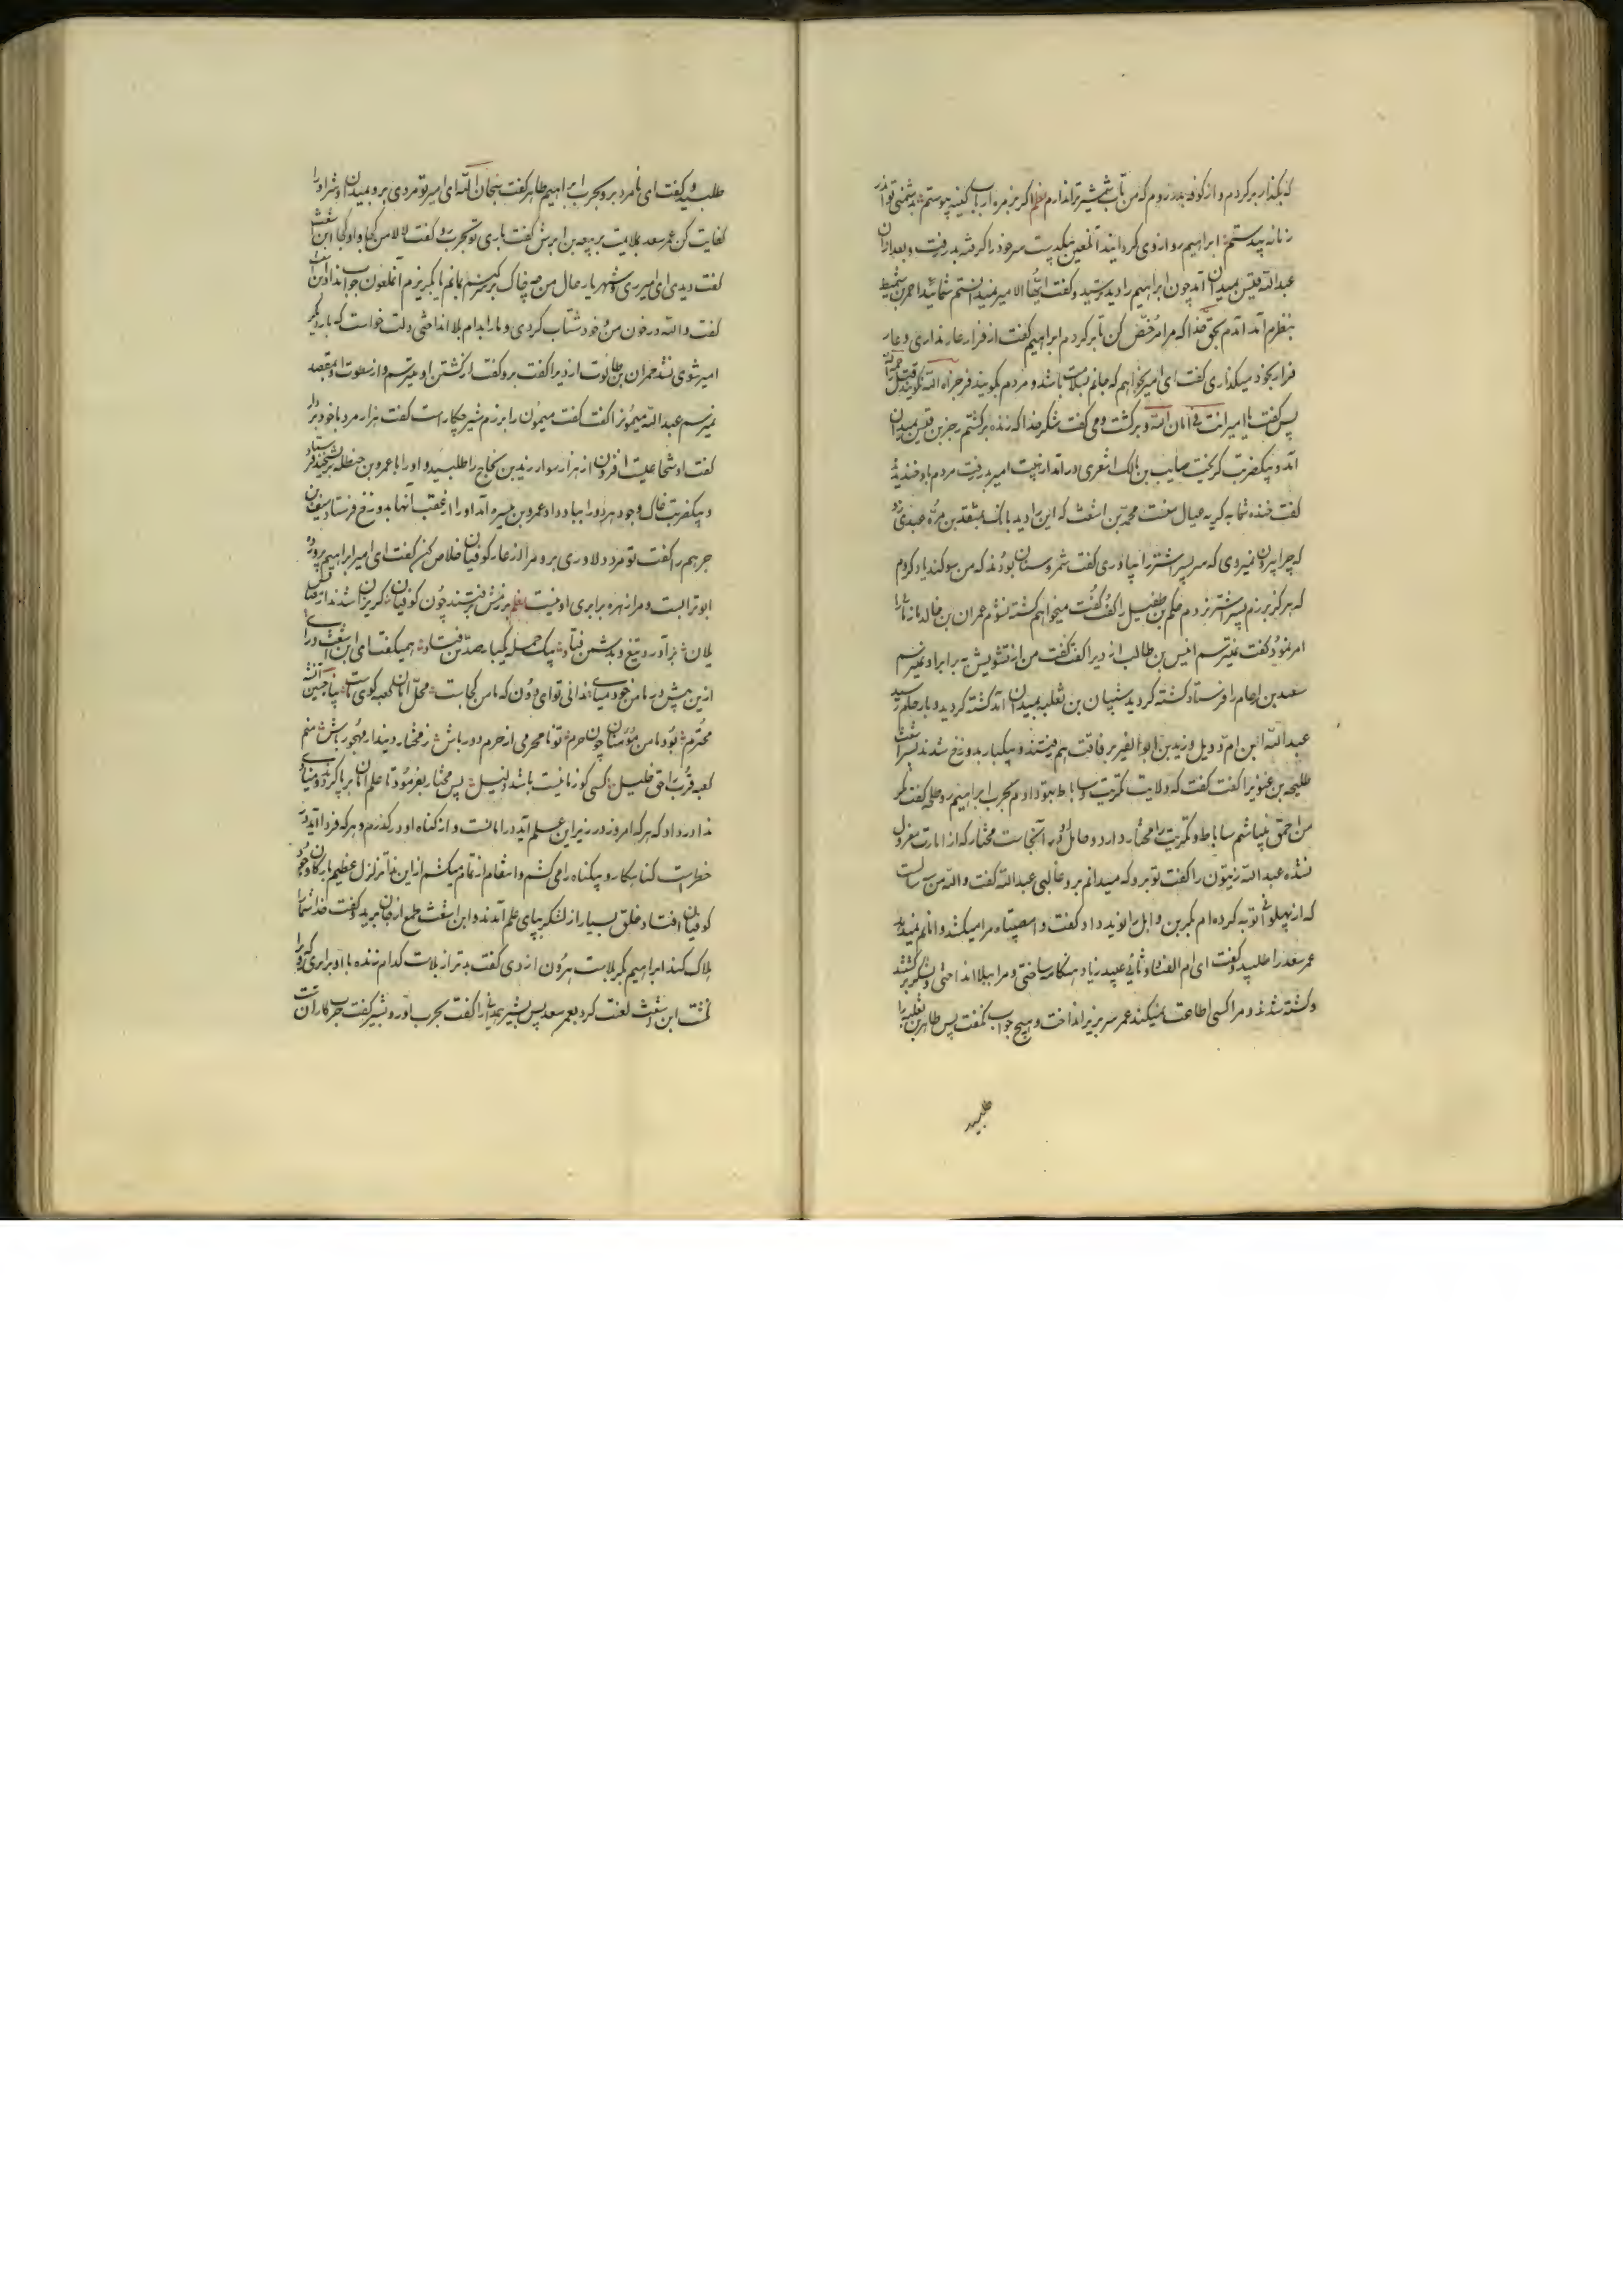 که بگذار برگردم و از کوفه بدر روم که من تاب شمشیر تو ندارم نظم اگر بزمره ارباب کینه پیوستم بدشمنی تو
زنانه پیدستم ابراهیم رو از وی گردانید آنلعین بیکدست سر خود را گرفته بدر رفت و بعد از آن
عبدالله قیس بمیدان آمد چون ابراهیم را دید ترسید و گفت ایها الامیر نمیدانستم شمائید احمر بن شمیط
بنظرم آمد آمدم بحق خدا که مرا مرخص کن تا برگردم ابراهیم گفت از فرار عار نداری و عار
فرار بخود میگذاری گفت ای امیر میخواهم که جانم بسلامت باشد و مردم بگویند فر جزاه الله نگویند قتل رحمه الله
پس گفت یا امیر انت فی امان الله و برگشت و می گفت شکر خدا که زنده برگشتم رجز بن قیس بمیدان
آمد و بیکضربت گریخت صایب بن مالک اشعری در آمد از هیبت امیر بدر رفت مردم باو خندیدند
گفت خنده شما به گریه عیال من محمد بن اشعث که این را دید بانگ بمنقذ بن مره عبدی زد
که چرا بیرون نمیروی که سر پسر اشتر را بیاوری گفت شمر و سنان بودند که من سوگند یاد کردم
که هرگز برزم پسر اشتر نروم حکم بن طفیل را گفت گفت میخواهم کشته نشوم عمران بن خالد را
امر نمود گفت میترسم انیس بن طالب ازدی را گفت گفت من از تشویش برابر او نمیرسم
سعد بن را فرستاد کشته گردید شیبان بن ثعلبه بمیدان آمد کشته گردید و بار حکم رسید
عبدالله ابن ام دویل و زید بن ابوالفیر برفاقت هم رفتند و بیکبار بدوزخ شدند پسر اشعث
طلیحه بن را گفت گفت که ولایت تکریت و ساباط بتو دادم بحرب ابراهیم رو طلیحه گفت مگر
من احمق باشم ساباط و تکریت را مختار دارد و عامل او در آنجاست مختار که از امارت معزول
نشده عبدالله زیتون را گفت تو برو که میدانم بر او غالبی عبدالله گفت والله من سه سالست
که از پهلوانی توبه کرده ام بکر بن وابل را نوید داد گفت وامصیبتاه مرا میکشد و امانم نمیدهد
عمر سعد را طلبید و گفت ای ام الفساد و ثانی عبید زیاد هنگامه ساختی و مرا ببلا انداختی و لشکر برگشتند
و کشته شدند و مرا کسی اطاعت نمیکند عمر سر بزیر انداخت و هیچ جواب نگفت پس طاهر بن ثعلبه را
طلبید
طلبید و گفت ای نامرد برو بحرب ابراهیم طاهر گفت سبحان الله ای امیر تو مردی برو بمیدان و شر او را
کفایت کن عمر سعد بملایمت بربیعه بن ابرش گفت باری تو بحرب رو گفت لا لا من کجا و او کجا ابن اشعث
گفت دیدی ای امیر ری و شهریار حال من چه خاک بر سر کنم بمانم یا بگریزم آنملعون جواب نداد ابن اشعث
گفت والله در خون من و خود شتاب کردی و ما را بدام بلا انداختی دلت خواست که بار دیگر
امیر شوی نشد حمران بن طالوت ازدی را گفت برو گفت از کشتن او میترسم و از سطوت او بمقصد
نمیرسم عبدالله میمون را گفت گفت میمون را برزم شیر چکار است گفت هزار مرد با خود بردار
گفت او شجاعیست افزون از هزار سوار زید بن نجاح را طلبید و او را با عمرو بن حنظله فرستاد
و بیکضربت خاک وجود هر دو را بباد داد عمرو بن میسره آمد او را از عقب آنها بدوزخ فرستاد
جرهم را گفت تو مرد دلاوری برو مرا از عار کوفیان خلاص کن گفت ای امیر ابراهیم پرورده
ابوترابست و مرا زهره برابری او نیست نظم برزمش نرفتند چون کوفیان گریزان شدند از
یلان برآورد تیغ و بدشمن فتاد بیک حمله یکبار صد تن فتاد همیگفت ای ابن اشعث
ازین بیش در ما من خود میاسای ندانی تو ای دون که مامن کجاست محل امان کعبه کوی ماست
محترم بود مامن مومنان چون حرم تو نامحرمی از حرم دور باش ز مختار دیندار مهجور باش منم
کعبه قرب را حق خلیل کسی کو ز ما نیست باشد ذلیل پس مختار بفرمود تا علم امان برپا کردند و منادی
ندا در داد که هر که امروز در زیر این علم آید در امانست و از گناه او در گذرم و هر که فردا آید در
خطر است گناهکار و بیگناه را می کشم و انتقام از تمام میکشم از این ندا تزلزل عظیم بارکان وجود
کوفیان افتاد و خلق بسیار از لشکر بپای علم آمدند و ابن اشعث طمع از جان برید و گفت خدا شما را
هلاک کند ابراهیم مگر بلاست هرون ازدی گفت بدتر از بلاست کدام زنده با او برابری کرد
گشت ابن اشعث لعنت کرد بعمر سعد پس بشیر همدانی را گفت بحرب او رو بشیر گفت حرب کار آنست